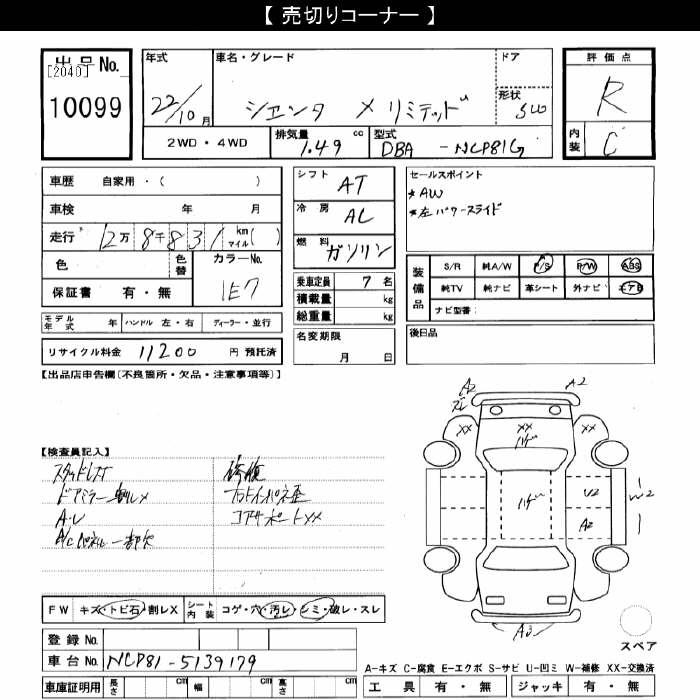 【 売切りコーナー 】
出品No. [2040] 10099
年式 22/10月
車名・グレード シエンタ X リミテッド
ドア
形状 SW
評価点 R
内装 C
2WD・4WD
排気量 1.49 cc
型式 DBA-NCP81G
車歴 自家用・( )
車検 年 月
走行 12万8千831 km マイル( )
色
色替
カラーNo. 1E7
保証書 有・無
シフト AT
冷房 AC
燃料 ガソリン
乗車定員 7名
積載量 kg
総重量 kg
セールスポイント
*AW
*左パワースライド
装備品
S/R 純A/W P/S P/W ABS
純TV 純ナビ 革シート 外ナビ エアB
ナビ型番:
モデル年式 年 ハンドル 左・右 ディーラー・並行
名変期限 月 日
後日品
リサイクル料金 11200 円 預託済
【出品店申告欄(不良箇所・欠品・注意事項等)】
A2 A2
XX XX XX
ハゲ
ハゲ
U2 W2
A2
A3
【検査員記入】
スタッドレス付 修復
ドアミラー割レX フロントインパネ歪
A・U コアサポートXX
A/Cパネル一部欠
FW キズ・トビ石・割レX シート内装 コゲ・穴・汚レ・シミ・破レ・スレ
登録No.
車台No. NCP81-5139179
スペア
A-キズ C-腐食 E-エクボ S-サビ U-凹ミ W-補修 XX-交換済
車庫証明用 長さ cm 幅 cm 高さ cm
工具 有・無 ジャッキ 有・無